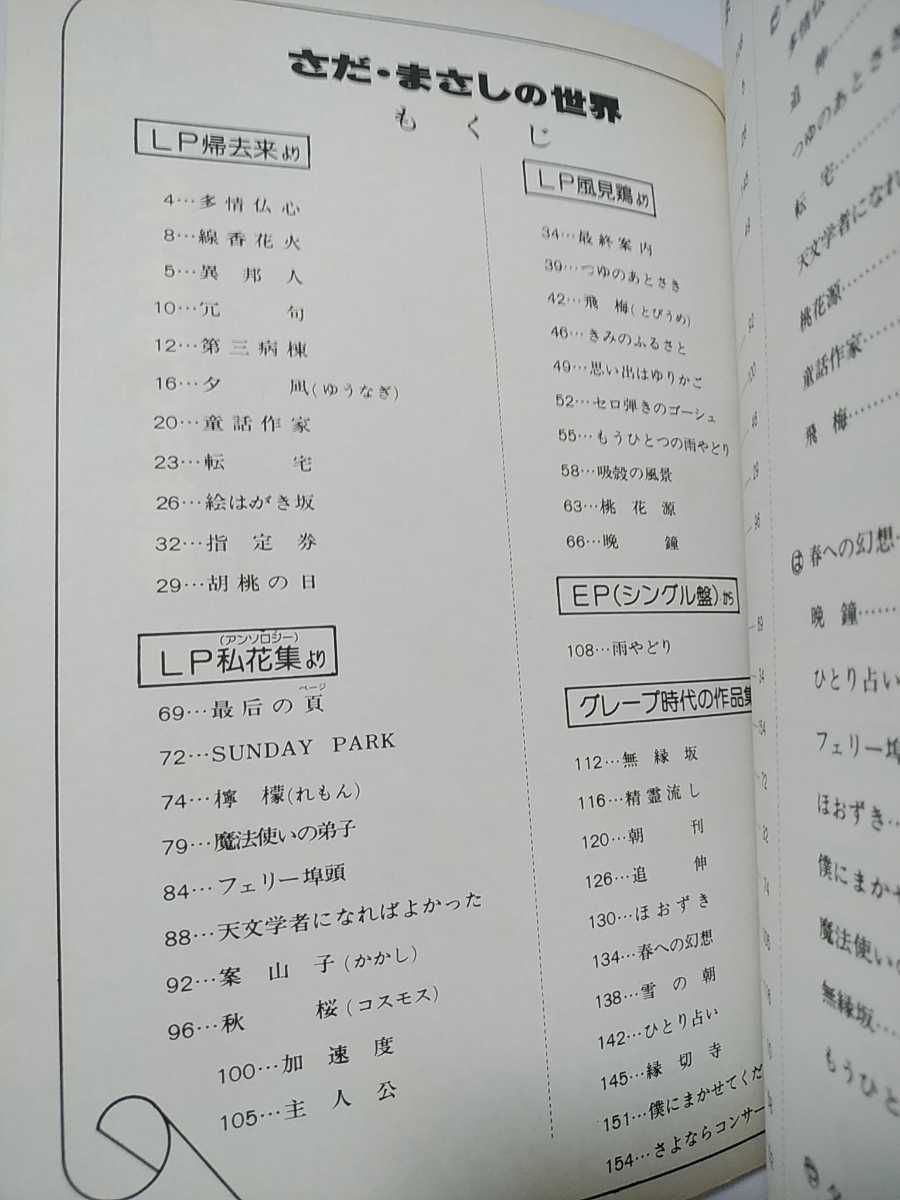 さだ・まさしの世界
もくじ
LP帰去来より
4…多情仏心
8…線香花火
5…異邦人
10…冗句
12…第三病棟
16…夕凪(ゆうなぎ)
20…童話作家
23…転宅
26…絵はがき坂
32…指定券
29…胡桃の日
(アンソロジー)
LP私花集より
ページ
69…最后の頁
72…SUNDAY PARK
74…檸檬(れもん)
79…魔法使いの弟子
84…フェリー埠頭
88…天文学者になればよかった
92…案山子(かかし)
96…秋桜(コスモス)
100…加速度
105…主人公
LP風見鶏より
34…最終案内
39…つゆのあとさき
42…飛梅(とびうめ)
46…きみのふるさと
49…思い出はゆりかご
52…セロ弾きのゴーシュ
55…もうひとつの雨やどり
58…吸殻の風景
63…桃花源
66…晩鐘
EP(シングル盤)から
108…雨やどり
グレープ時代の作品集
112…無縁坂
116…精霊流し
120…朝刊
126…追伸
130…ほおずき
134…春への幻想
138…雪の朝
142…ひとり占い
145…縁切寺
151…僕にまかせてくだ
154…さよならコンサー
多情仏
追伸
つゆのあとさき
転宅
天文学者になれ
桃花源
童話作家
飛梅
は 春への幻想
晩鐘
ひとり占い
フェリー埠
ほおずき
僕にまかせ
魔法使いの
無縁坂
もうひと